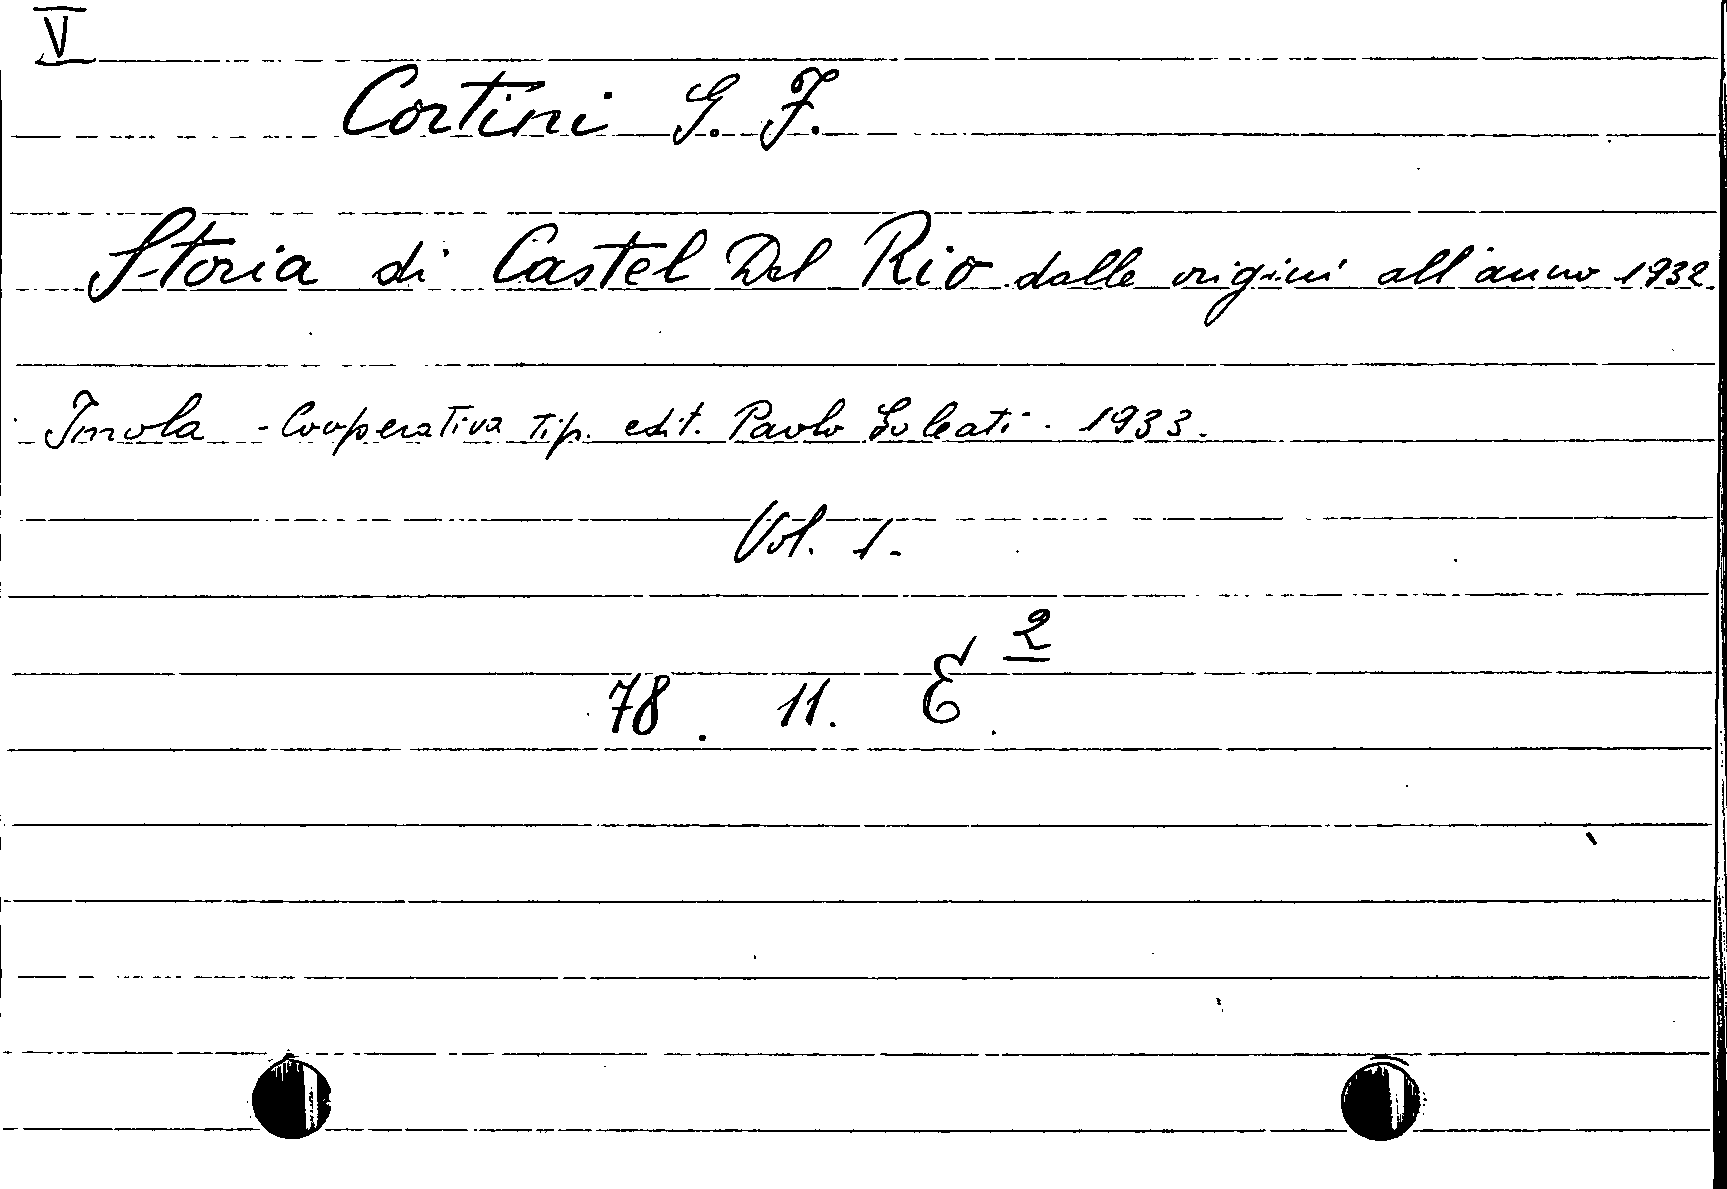 V
Cortini G. F.
Storia di Castel Del Rio dalle origini all'anno 1932.
Imola - Cooperativa tip. edit. Paolo Galeati - 1933.
Vol. 1.
78. 11. E 2